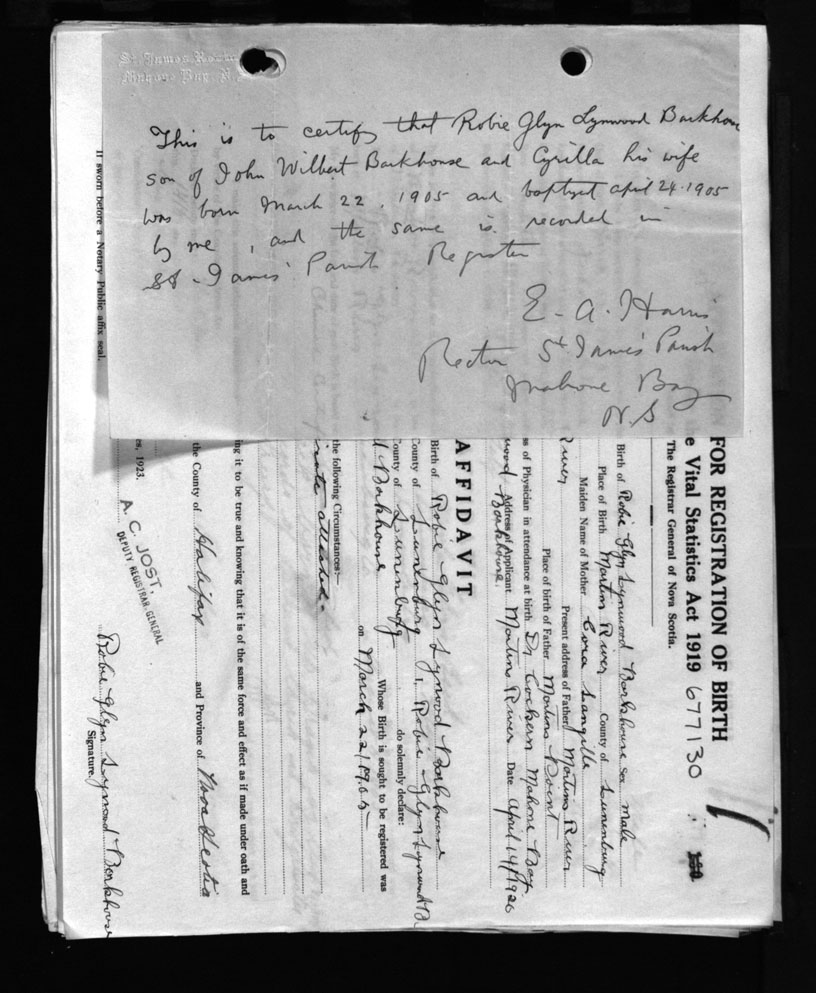 St. James Rectory
Mahone Bay N.S.
This is to certify that Robie Glyn Lynwood Barkhouse
son of John Wilbert Barkhouse and Cyrilla his wife
was born March 22, 1905 and baptized april 24. 1905
by me, and the same is recorded in
St. James' Parish Register
E. A. Harris
Rector St James Parish
Mahone Bay
N.S
FOR REGISTRATION OF BIRTH
e Vital Statistics Act 1919 677130
The Registrar General of Nova Scotia.
Birth of Robie Glyn Lynwood Barkhouse sex male
Place of Birth Martins River County of Lunenburg
Maiden Name of Mother Cora Langille
River Present address of Father Martins River
Place of birth of Father Martins Point
ss of Physician in attendance at birth Dr Cockern Mahone Bay
Address of Applicant Martins River Date April 14/1926
wood Barkhouse.
AFFIDAVIT
Birth of Robie Glyn Lynwood Barkhouse
County of Lunenburg I, Robie Glyn Lynwood B
County of Lunenburg do solemnly declare:
d Barkhouse Whose Birth is sought to be registered was
on March 22/1905
the following Circumstances:—
attached.
ng it to be true and knowing that it is of the same force and effect as if made under oath and
the County of Halifax and Province of Nova Scotia
A. C. JOST
DEPUTY REGISTRAR-GENERAL
es, 1923.
Robie Glyn Lynwood Barkhouse
Signature.
If sworn before a Notary Public affix seal.